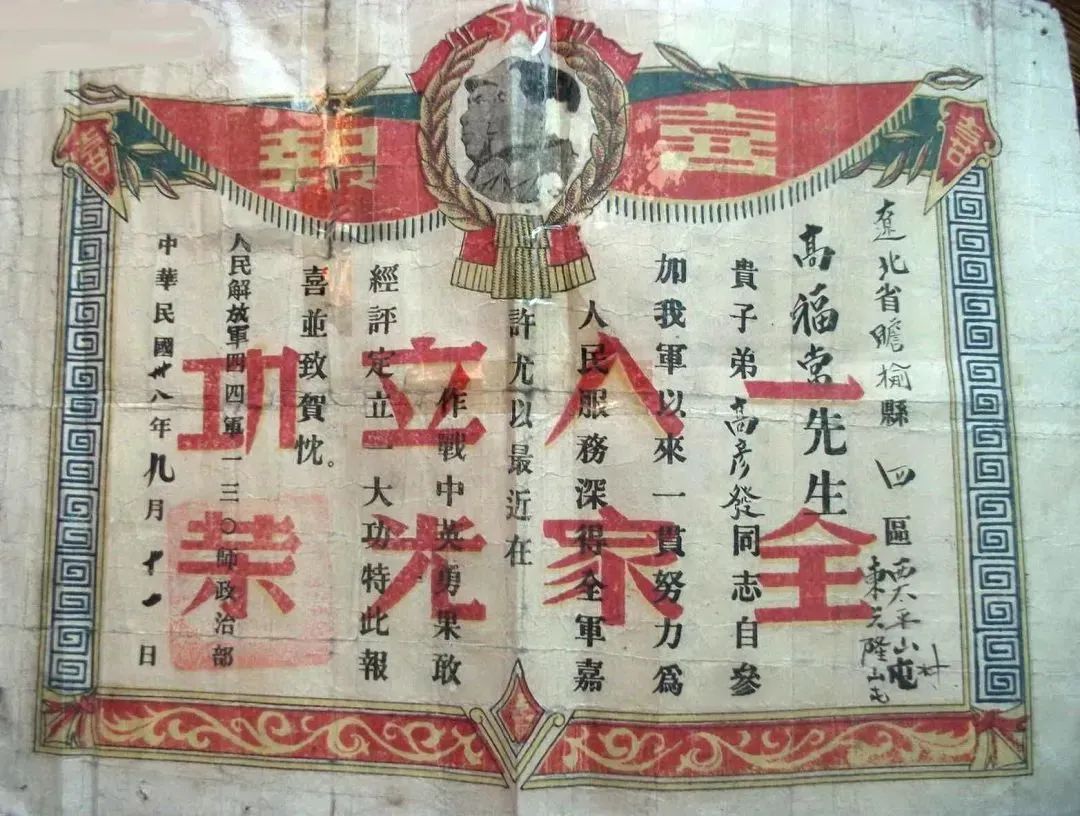 喜報
遼北省瞻榆縣四區西太平山屯村
東興隆山屯
高福常先生
貴子弟高彥發同志自參
加我軍以來一貫努力為
人民服務深得全軍嘉
許尤以最近在
作戰中英勇果敢
經評定立一大功特此報
喜並致賀忱。
人民解放軍四四軍一三〇師政治部
中華民國卅八年九月十一日
一人立功
全家光榮